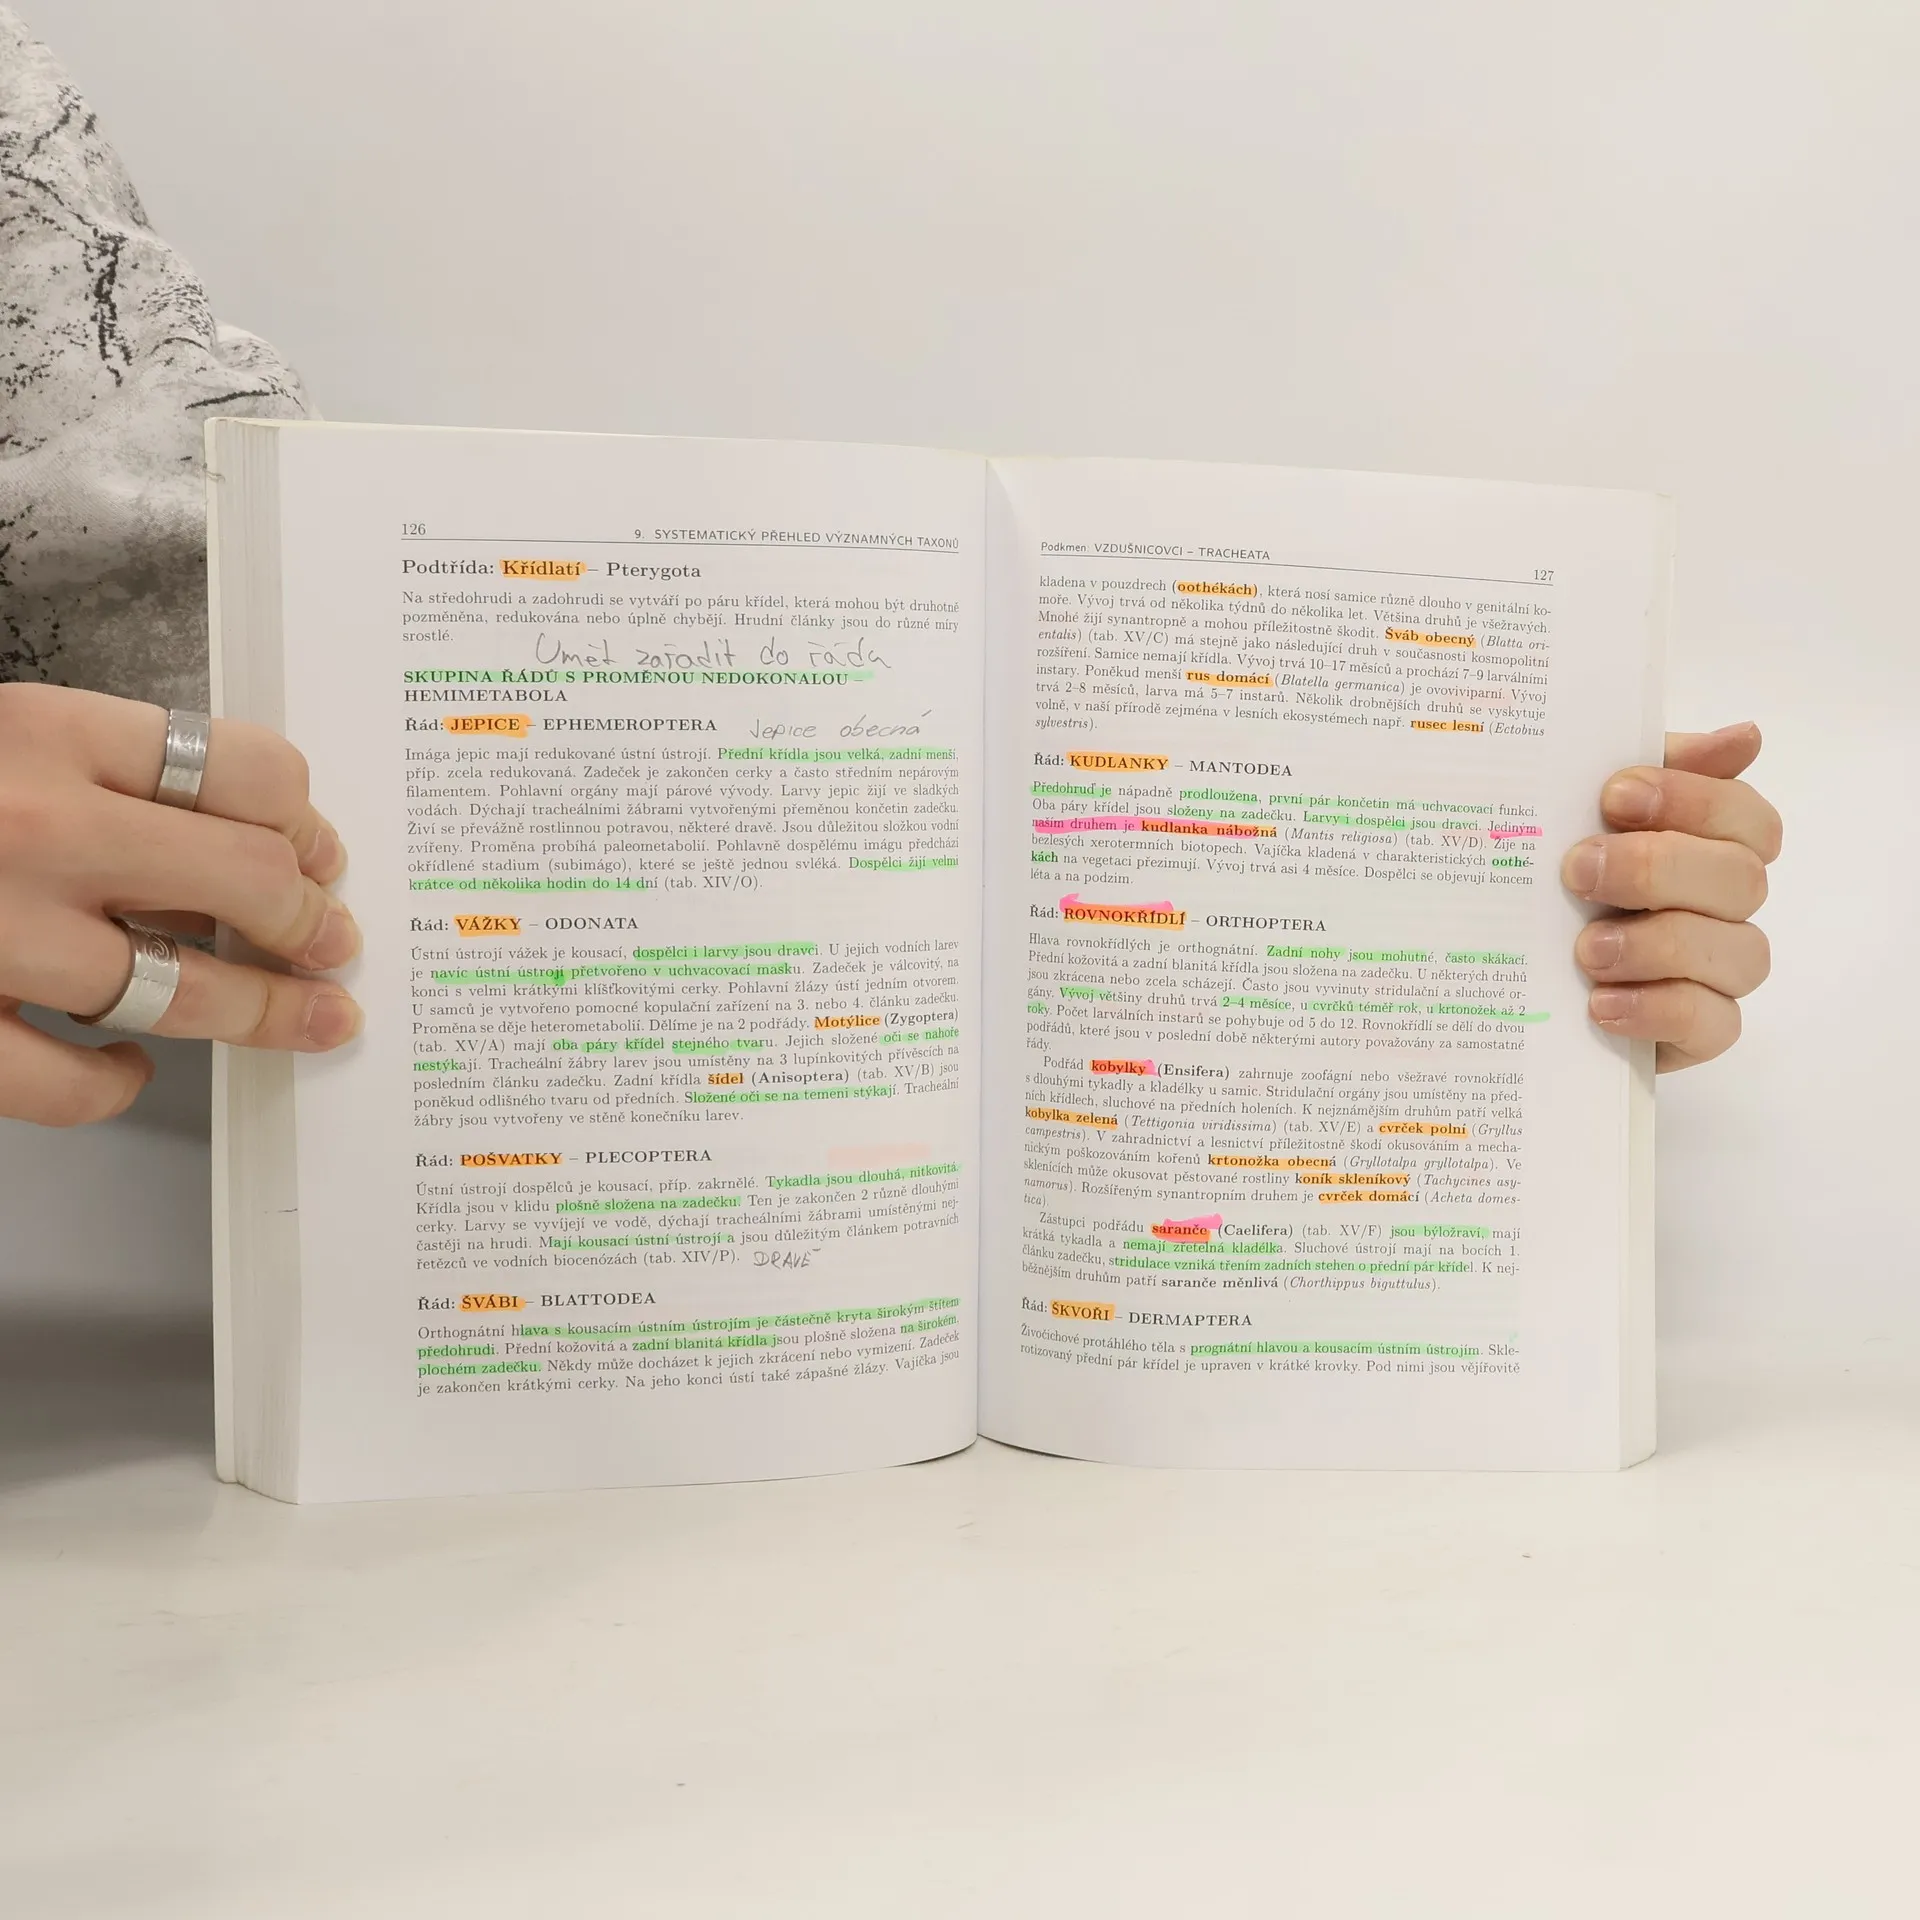 126
9. SYSTEMATICKÝ PŘEHLED VÝZNAMNÝCH TAXONŮ
Podtřída: Křídlatí – Pterygota
Na středohrudi a zadohrudi se vytváří po páru křídel, která mohou být druhotně
pozměněna, redukována nebo úplně chybějí. Hrudní články jsou do různé míry
srostlé.
Umět zařadit do řádu
SKUPINA ŘÁDŮ S PROMĚNOU NEDOKONALOU –
HEMIMETABOLA
Řád: JEPICE – EPHEMEROPTERA Jepice obecná
Imága jepic mají redukované ústní ústrojí. Přední křídla jsou velká, zadní menší,
příp. zcela redukovaná. Zadeček je zakončen cerky a často středním nepárovým
filamentem. Pohlavní orgány mají párové vývody. Larvy jepic žijí ve sladkých
vodách. Dýchají tracheálními žábrami vytvořenými přeměnou končetin zadečku.
Živí se převážně rostlinnou potravou, některé dravě. Jsou důležitou složkou vodní
zvířeny. Proměna probíhá paleometabolií. Pohlavně dospělému imágu předchází
okřídlené stadium (subimágo), které se ještě jednou svléká. Dospělci žijí velmi
krátce od několika hodin do 14 dní (tab. XIV/O).
Řád: VÁŽKY – ODONATA
Ústní ústrojí vážek je kousací, dospělci i larvy jsou dravci. U jejich vodních larev
je navíc ústní ústrojí přetvořeno v uchvacovací masku. Zadeček je válcovitý, na
konci s velmi krátkými klíšťkovitými cerky. Pohlavní žlázy ústí jedním otvorem.
U samců je vytvořeno pomocné kopulační zařízení na 3. nebo 4. článku zadečku.
Proměna se děje heterometabolií. Dělíme je na 2 podřády. Motýlice (Zygoptera)
(tab. XV/A) mají oba páry křídel stejného tvaru. Jejich složené oči se nahoře
nestýkají. Tracheální žábry larev jsou umístěny na 3 lupínkovitých přívěscích na
posledním článku zadečku. Zadní křídla šídel (Anisoptera) (tab. XV/B) jsou
poněkud odlišného tvaru od předních. Složené oči se na temeni stýkají. Tracheální
žábry jsou vytvořeny ve stěně konečníku larev.
Řád: POŠVATKY – PLECOPTERA
Ústní ústrojí dospělců je kousací, příp. zakrnělé. Tykadla jsou dlouhá, nitkovitá.
Křídla jsou v klidu plošně složena na zadečku. Ten je zakončen 2 různě dlouhými
cerky. Larvy se vyvíjejí ve vodě, dýchají tracheálními žábrami umístěnými nej-
častěji na hrudi. Mají kousací ústní ústrojí a jsou důležitým článkem potravních
řetězců ve vodních biocenózách (tab. XIV/P). DRAVÉ
Řád: ŠVÁBI – BLATTODEA
Orthognátní hlava s kousacím ústním ústrojím je částečně kryta širokým štítem
předohrudi. Přední kožovitá a zadní blanitá křídla jsou plošně složena na širokém,
plochém zadečku. Někdy může docházet k jejich zkrácení nebo vymizení. Zadeček
je zakončen krátkými cerky. Na jeho konci ústí také zápašné žlázy. Vajíčka jsou
Podkmen: VZDUŠNICOVCI – TRACHEATA
127
kladena v pouzdrech (oothékách), která nosí samice různě dlouho v genitální ko-
moře. Vývoj trvá od několika týdnů do několika let. Většina druhů je všežravých.
Mnohé žijí synantropně a mohou příležitostně škodit. Šváb obecný (Blatta ori-
entalis) (tab. XV/C) má stejně jako následující druh v současnosti kosmopolitní
rozšíření. Samice nemají křídla. Vývoj trvá 10–17 měsíců a prochází 7–9 larválními
instary. Poněkud menší rus domácí (Blatella germanica) je ovoviviparní. Vývoj
trvá 2–8 měsíců, larva má 5–7 instarů. Několik drobnějších druhů se vyskytuje
volně, v naší přírodě zejména v lesních ekosystémech např. rusec lesní (Ectobius
sylvestris).
Řád: KUDLANKY – MANTODEA
Předohruď je nápadně prodloužena, první pár končetin má uchvacovací funkci.
Oba páry křídel jsou složeny na zadečku. Larvy i dospělci jsou dravci. Jediným
naším druhem je kudlanka nábožná (Mantis religiosa) (tab. XV/D). Žije na
bezlesých xerotermních biotopech. Vajíčka kladená v charakteristických oothé-
kách na vegetaci přezimují. Vývoj trvá asi 4 měsíce. Dospělci se objevují koncem
léta a na podzim.
Řád: ROVNOKŘÍDLÍ – ORTHOPTERA
Hlava rovnokřídlých je orthognátní. Zadní nohy jsou mohutné, často skákací.
Přední kožovitá a zadní blanitá křídla jsou složena na zadečku. U některých druhů
jsou zkrácena nebo zcela scházejí. Často jsou vyvinuty stridulační a sluchové or-
gány. Vývoj většiny druhů trvá 2–4 měsíce, u cvrčků téměř rok, u krtonožek až 2
roky. Počet larválních instarů se pohybuje od 5 do 12. Rovnokřídlí se dělí do dvou
podřádů, které jsou v poslední době některými autory považovány za samostatné
řády.
Podřád kobylky (Ensifera) zahrnuje zoofágní nebo všežravé rovnokřídlé
s dlouhými tykadly a kladélky u samic. Stridulační orgány jsou umístěny na před-
ních křídlech, sluchové na předních holeních. K nejznámějším druhům patří velká
kobylka zelená (Tettigonia viridissima) (tab. XV/E) a cvrček polní (Gryllus
campestris). V zahradnictví a lesnictví příležitostně škodí okusováním a mecha-
nickým poškozováním kořenů krtonožka obecná (Gryllotalpa gryllotalpa). Ve
sklenících může okusovat pěstované rostliny koník skleníkový (Tachycines asy-
namorus). Rozšířeným synantropním druhem je cvrček domácí (Acheta domes-
tica).
Zástupci podřádu saranče (Caelifera) (tab. XV/F) jsou býložraví, mají
krátká tykadla a nemají zřetelná kladélka. Sluchové ústrojí mají na bocích 1.
článku zadečku, stridulace vzniká třením zadních stehen o přední pár křídel. K nej-
běžnějším druhům patří saranče měnlivá (Chorthippus biguttulus).
Řád: ŠKVOŘI – DERMAPTERA
Živočichové protáhlého těla s prognátní hlavou a kousacím ústním ústrojím. Skle-
rotizovaný přední pár křídel je upraven v krátké krovky. Pod nimi jsou vějířovitě